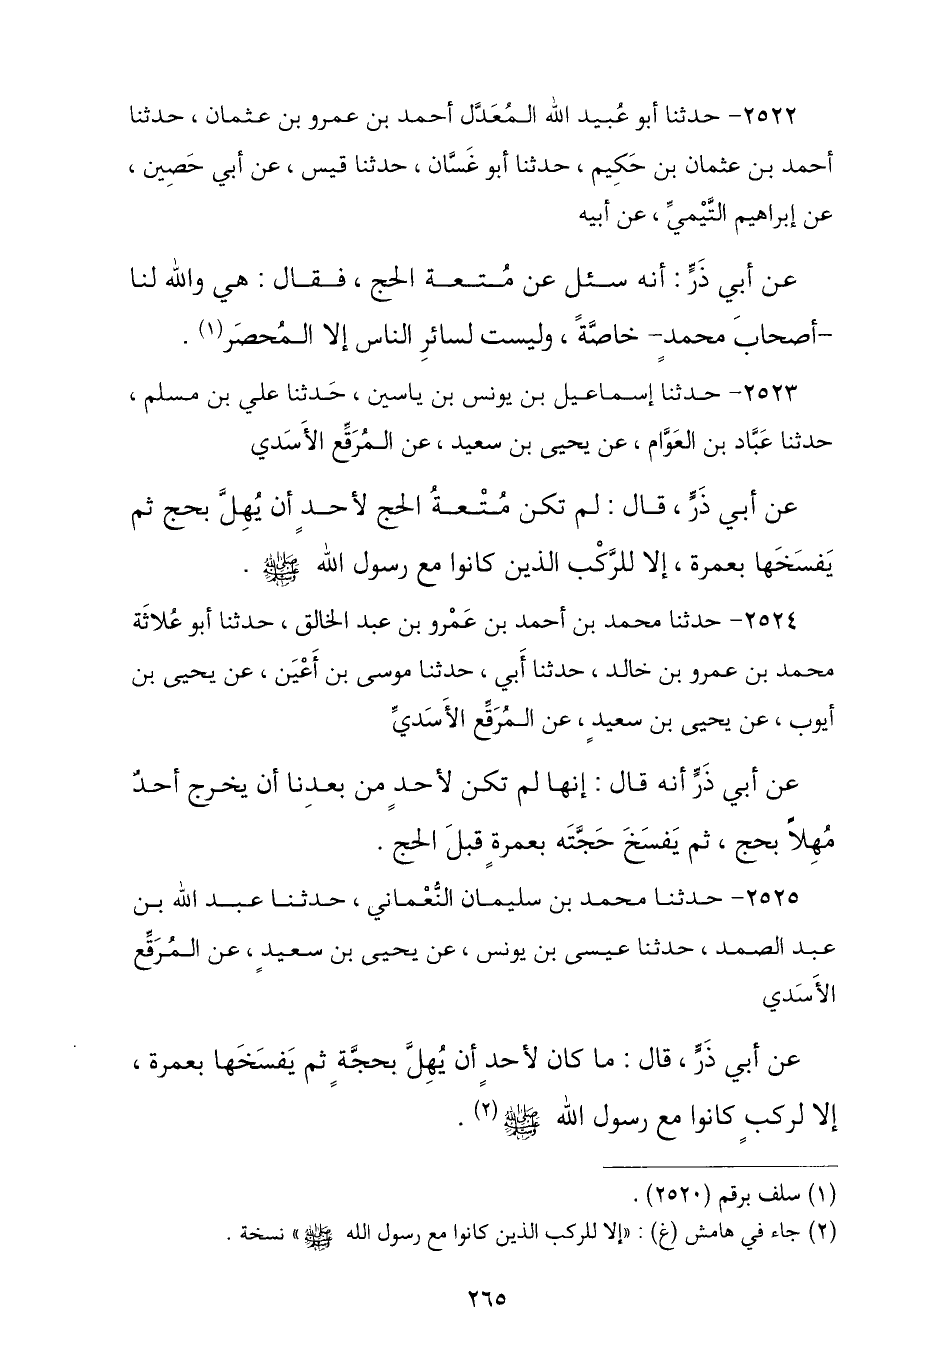 ٢٥٢٢- حدثنا أبو عُبيد الله المُعَدَّل أحمد بن عمرو بن عثمان ، حدثنا
أحمد بن عثمان بن حَكِيم ، حدثنا أبو غَسَّان ، حدثنا قيس ، عن أبي حَصِين ،
عن إبراهيم التَّيْميِّ ، عن أبيه
عن أبي ذَرٍّ : أنه سئل عن مُتعة الحج ، فقال : هي والله لنا
-أصحابَ محمدٍ- خاصَّةً ، وليست لسائرِ الناس إلا المُحصَر(١) .
٢٥٢٣- حدثنا إسماعيل بن يونس بن ياسين ، حَدثنا علي بن مسلم ،
حدثنا عَبَّاد بن العَوَّام ، عن يحيى بن سعيد ، عن المُرَقِّع الأَسَدي
عن أبي ذَرٍّ ، قال : لم تكن مُتْعةُ الحج لأحدٍ أن يُهِلَّ بحج ثم
يَفسَخَها بعمرة ، إلا للرَّكْب الذين كانوا مع رسول الله ﷺ .
٢٥٢٤- حدثنا محمد بن أحمد بن عَمْرو بن عبد الخالق ، حدثنا أبو عُلاثَة
محمد بن عمرو بن خالد ، حدثنا أَبي ، حدثنا موسى بن أَعْيَن ، عن يحيى بن
أيوب ، عن يحيى بن سعيدٍ ، عن المُرَقِّع الأَسَديِّ
عن أبي ذَرٍّ أنه قال : إنها لم تكن لأحدٍ من بعدِنا أن يخرج أحدٌ
مُهِلاًّ بحج ، ثم يَفسَخَ حَجَّتَه بعمرةٍ قبلَ الحج .
٢٥٢٥- حدثنا محمد بن سليمان النُّعْماني ، حدثنا عبد الله بن
عبد الصمد ، حدثنا عيسى بن يونس ، عن يحيى بن سعيدٍ ، عن المُرَقِّع
الأَسَدي
عن أبي ذَرٍّ ، قال : ما كان لأحدٍ أن يُهِلَّ بحجَّةٍ ثم يَفسَخَها بعمرة ،
إلا لركبٍ كانوا مع رسول الله ﷺ(٢) .
(١) سلف برقم (٢٥٢٠) .
(٢) جاء في هامش (غ) : «إلا للركب الذين كانوا مع رسول الله ﷺ» نسخة .
٢٦٥